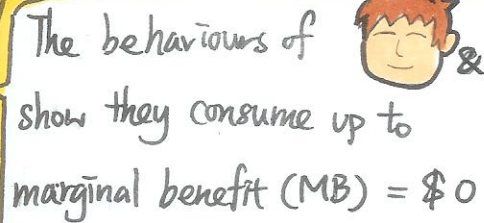 The behaviours of &
show they consume up to
marginal benefit (MB) = $0